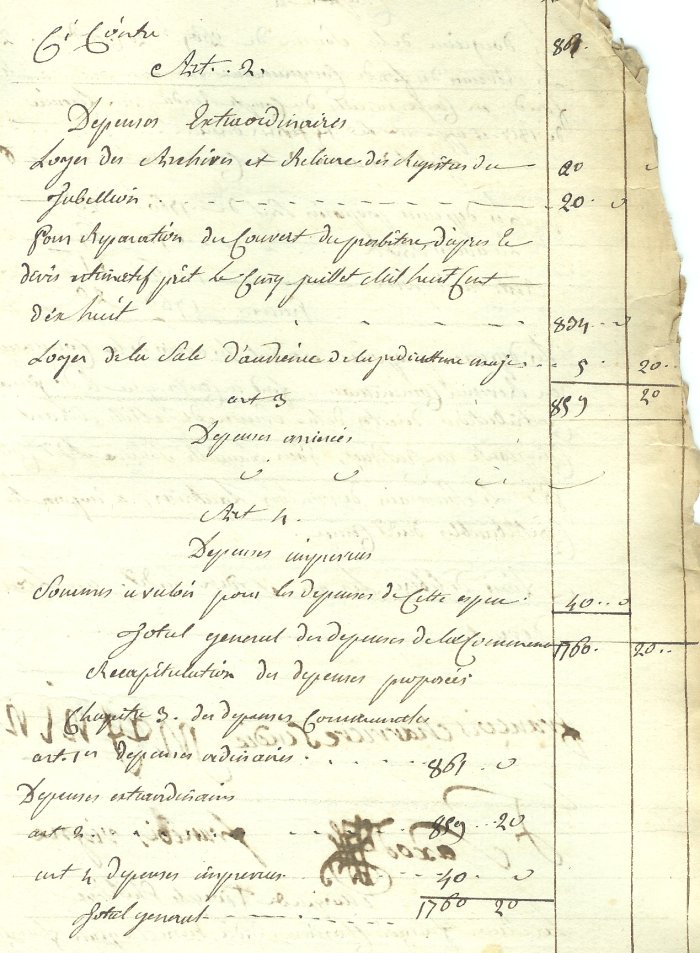 Ci Contre 861.
Art. 2.
Depenses Extraordinaires
Loyer des Archives et Relieure des Registres du 20
Tabellion 20 .. 0
Pour Reparation du Couvert du presbitere, d'apres le
devis estimatif prêt le Cinq juillet Mil huit Cent
dix huit 834 .. 0
Loyer de la Sale d'audience de la judicature maje 5 20
art 3 859 20
Depenses arrierés
0 0 0
Art 4.
Depenses imprevues
Sommes a valoir pour les depenses de Cette espece. 40 .. 0
Total general des depenses de la Commune 1760. 20
Recapitulation des depenses proposés
Chapitre 3. des depenses Communales
art. 1er depenses ordinaires 861 .. 0
Depenses extraordinaires
art 2. 859 .. 20
art 4 depenses imprevues 40 .. 0
Total general 1760 20